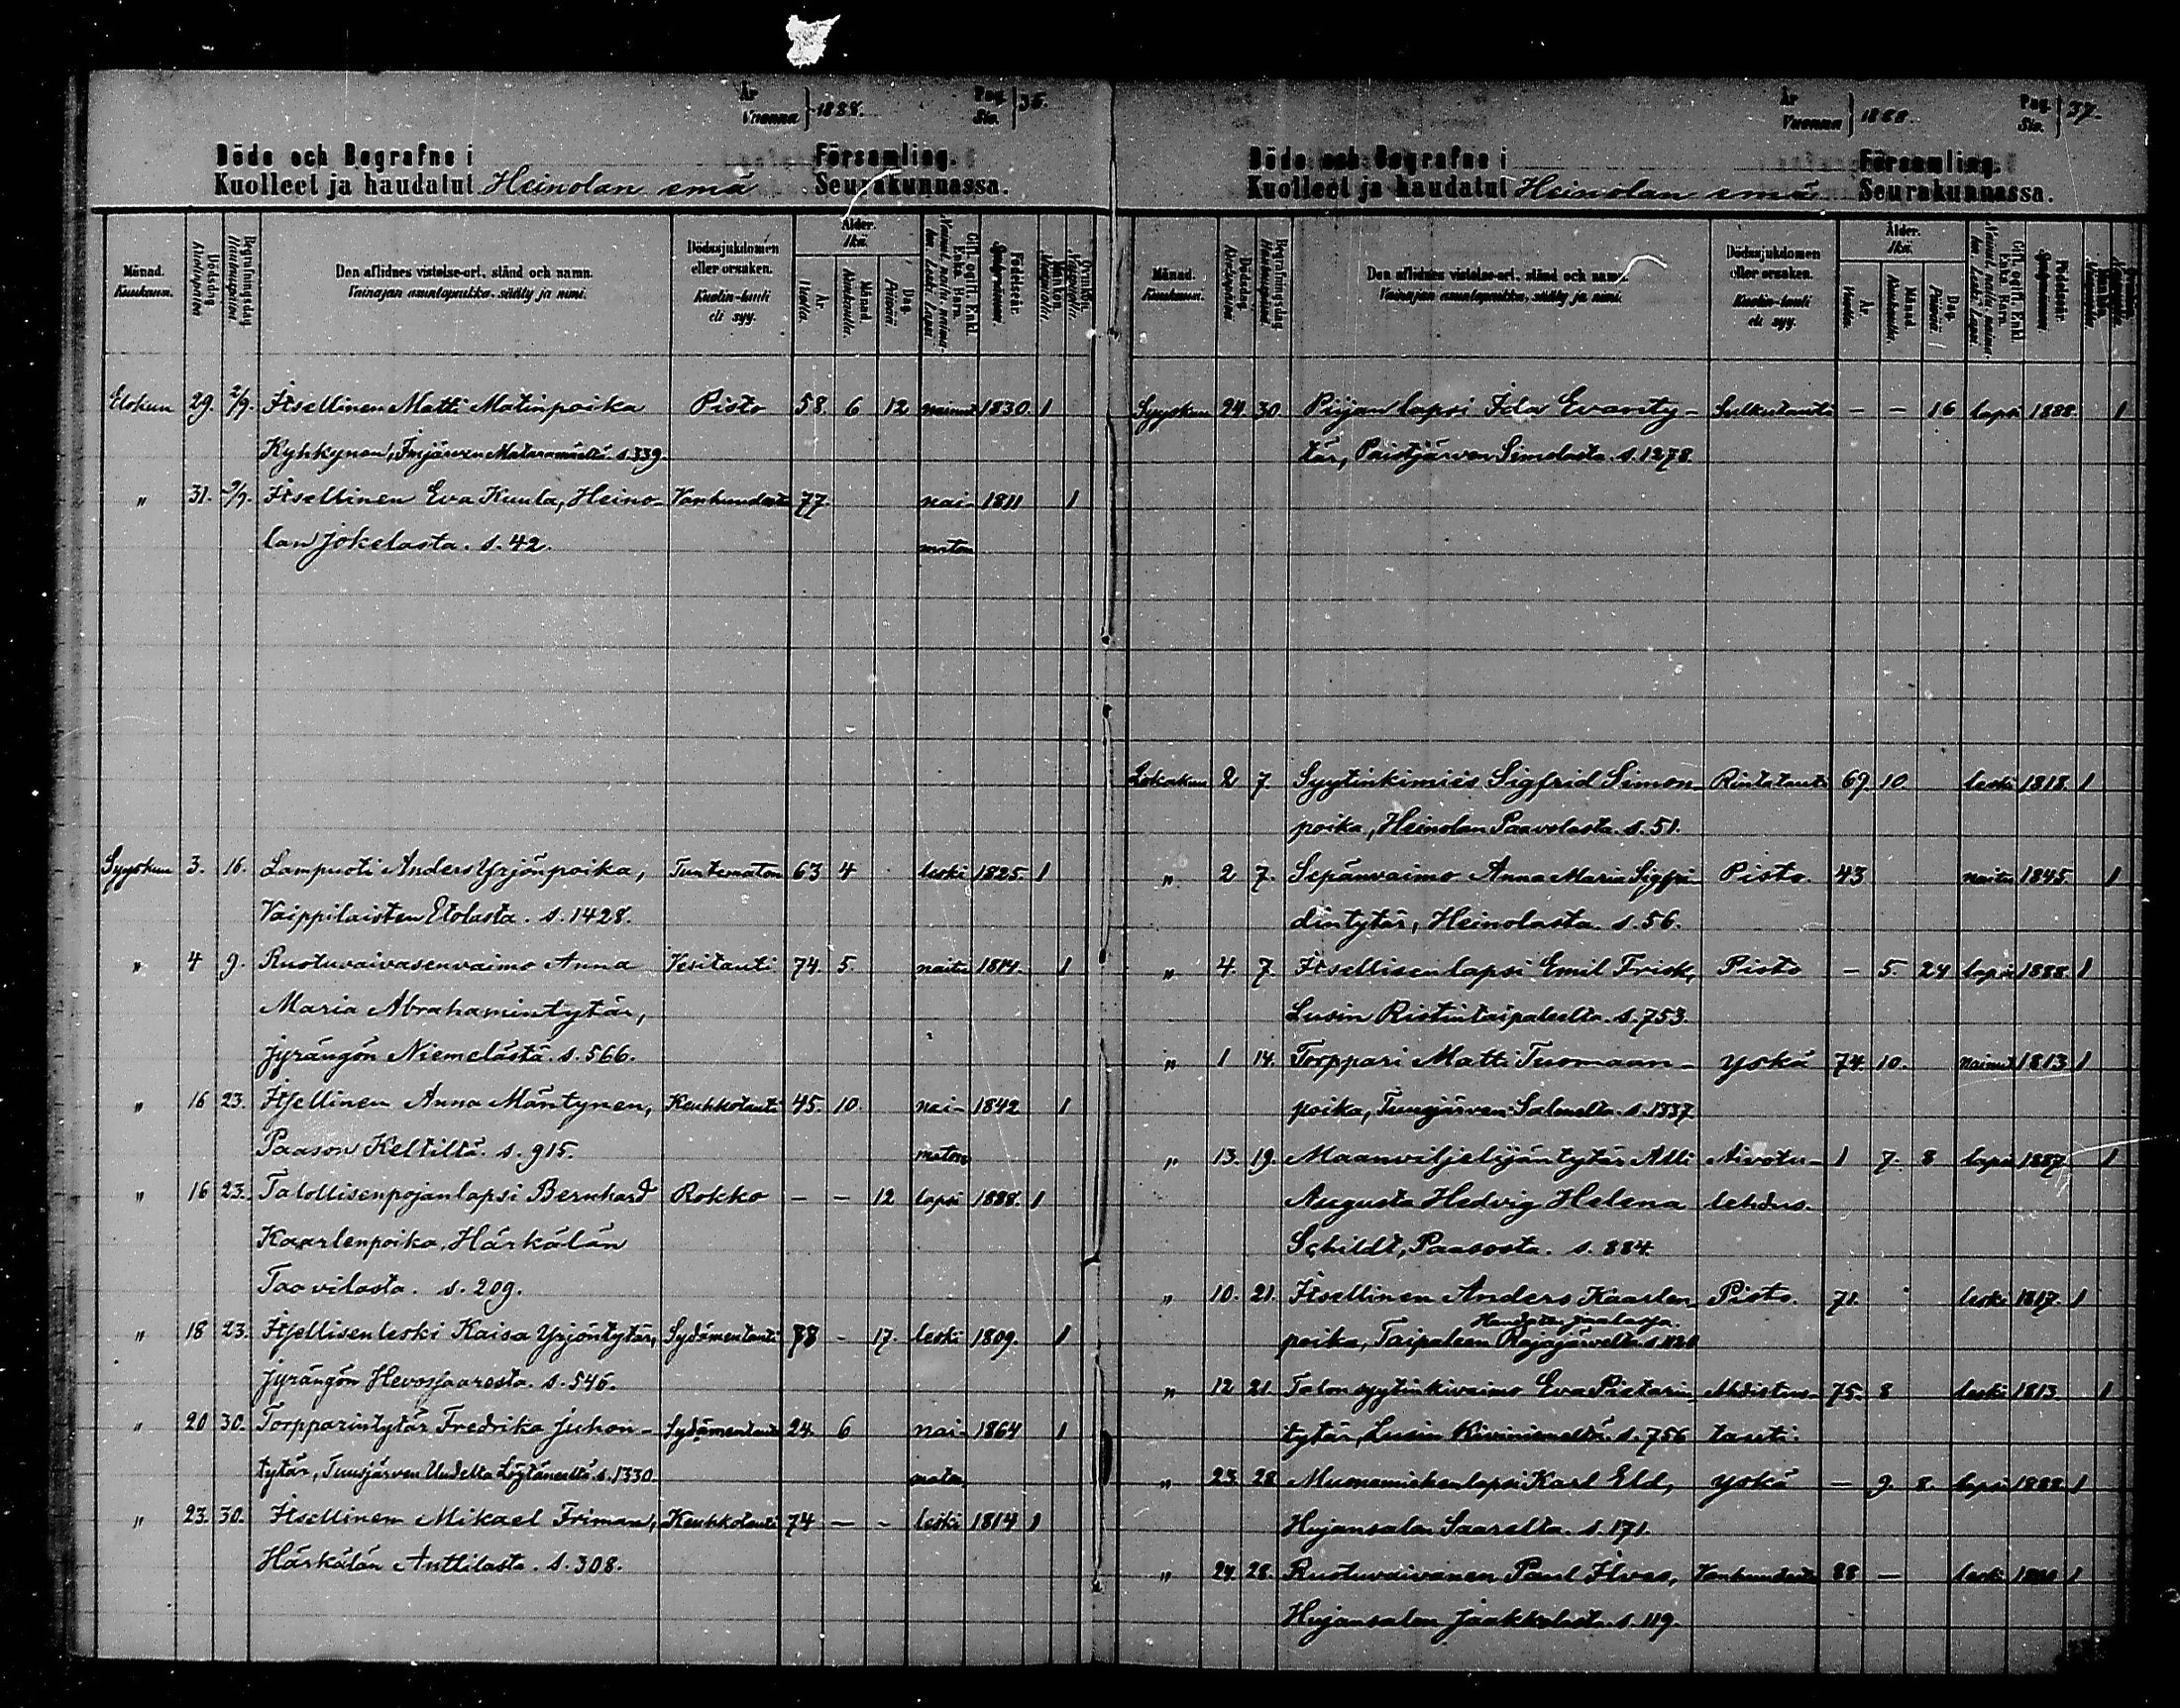 År
Vuonna } 1888.
Pag.
Siv. } 36.
Döde och Begrafne i Församling.
Kuolleet ja haudatut Heinolan emä Seurakunnassa.
Månad. Kuukausi.
Dödsdag Kuolinpäivä
Begrafningsdag Hautauspäivä
Den aflidnes vistelse-ort, stånd och namn.
Vainajan asuntopaikka, sääty ja nimi.
Dödssjukdomen eller orsaken.
Kuolin-tauti eli syy.
Ålder. Ikä.
År. Vuotta.
Månad. Kuukautta.
Dag. Päivää
Gift, ogift, Enkl. Enka, Barn.
Födelseår.
Mankön. Miespuolia.
Qvinkön. Naispuolia.
Elokuu 29. 2/9. Itsellinen Matti Matinpoika Pisto 58. 6 12 nainut 1830. 1
s. 339.
" 31. 9/9. Itsellinen Eva Kuula, Heino- Vanhuudesta 77. nai- 1811 1
lan Jokelasta. s. 42. maton
Syyskuu 3. 16. Lampuoti Anders Yrjönpoika, Tuntematon 63 4 leski 1825. 1
Vaippilaisten Etolasta. s. 1428.
" 4 9. Ruotuvaivasenvaimo Anna Vesitauti 74. 5. naitu 1814. 1
Maria Abrahamintytär,
Jyrängön Niemelästä. s. 566.
" 16 23. Itsellinen Anna Mäntynen, Keuhkotauti 45. 10. nai- 1842 1
Paason Keltiltä. s. 915. maton
" 16 23. Talollisenpojanlapsi Bernhard Rokko — — 12 lapsi 1888. 1
Kaarlenpoika, Härkälän
Taavilasta. s. 209.
" 18 23. Itsellisenleski Kaisa Yrjöntytär, Sydämentauti — 17. leski 1809. 1
Jyrängön Hevossaaresta. s. 546.
" 20 30. Torpparintytär Fredrika Juhon- Sydämentauti 24. 6 nai- 1864 1
tytär, Tuusjärven Uudelta Löytäneeltä s. 1330. maton
" 23. 30. Itsellinen Mikael Friman, Keuhkotauti 74 — - leski 1814 1
Härkälän Anttilasta. s. 308.
År
Vuonna } 1888.
Pag.
Siv. } 37.
Döde och Begrafne i Församling.
Kuolleet ja haudatut Heinolan emä Seurakunnassa.
Månad. Kuukausi.
Dödsdag Kuolinpäivä
Begrafningsdag Hautauspäivä
Den aflidnes vistelse-ort, stånd och namn.
Vainajan asuntopaikka, sääty ja nimi.
Dödssjukdomen eller orsaken.
Kuolin-tauti eli syy.
Ålder. Ikä.
År. Vuotta.
Månad. Kuukautta.
Dag. Päivää
Gift, ogift, Enkl. Enka, Barn.
Födelseår.
Syyskuu 24 30. Piijan lapsi Ida Evanty- — — 16 lapsi 1888. 1
tär, Paistjärven Simolasta. s. 1278.
Lokakuu 2 7. Syytinkimies Sigfrid Simon- Rintatauti 69. 10. leski 1818. 1
poika, Heinolan Paavolasta. s. 51.
" 2 7. Sepänvaimo Anna Maria Sigfri- Pisto. 43 naitu 1845. 1
dintytär, Heinolasta. s. 56.
" 4. 7. Itsellisenlapsi Emil Frisk, Pisto — 5. 24 lapsi 1888. 1
Lusin Ristintaipaleelta. s. 753.
" 1 14. Torppari Matti Tuomaan- Yskä 74. 10. nainut 1813 1
poika, Tuusjärven Salmelta. s. 1337.
" 13. 19. Maanviljelijäntytär Alli Aivotu- 1 7. 8 lapsi 1887. 1
Augusta Hedvig Helena lehdus.
Schildt, Paasosta. s. 884.
" 10. 21. Itsellinen Anders Kaarlen- Pisto. 71. leski 1817. 1
poika, Taipaleen
" 12 21. Talon syytinkivaimo Eva Pietarin- Ahdistus- 75. 8 leski 1813. 1
tytär, Lusin Kiviniemeltä. s. 756 tauti.
" 23. 28 Muonamiehenlapsi Karl Eld, Yskä — 9. 8. lapsi 1888. 1
Hujansalon Saarelta. s. 171.
" 24. 28. Ruotuvaivanen Paul Ilves, Vanhuudesta 88 — leski 1800 1
Hujansalon Jaakkolasta. s. 119.